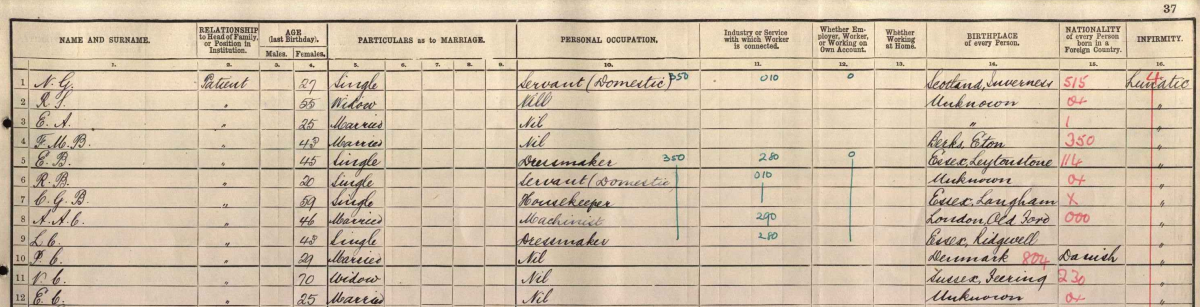 37
NAME AND SURNAME. RELATIONSHIP to Head of Family, or Position in Institution. AGE (last Birthday). Males. Females. PARTICULARS as to MARRIAGE. PERSONAL OCCUPATION. Industry or Service with which Worker is connected. Whether Employer, Worker, or Working on Own Account. Whether Working at Home. BIRTHPLACE of every Person. NATIONALITY of every Person born in a Foreign Country. INFIRMITY.
1. 2. 3. 4. 5. 6. 7. 8. 9. 10. 11. 12. 13. 14. 15. 16.
1 N. G. Patient 27 Single Servant (Domestic) 350 010 0 Scotland, Inverness 515 Lunatic 4
2 R. S. " 55 Widow Nill Unknown 0x "
3 E. A. " 25 Married Nil " 1 "
4 F. M. B. " 43 Married Nil Berks, Eton 350 "
5 E. B. " 45 Single Dressmaker 350 280 0 Essex, Leytonstone 114 "
6 R. B. " 20 Single Servant (Domestic 010 Unknown 0x "
7 C. G. B. " 59 Single Housekeeper Essex, Langham X "
8 A. A. C. " 46 Married Machinist 290 London, Old Ford 000 "
9 L. C. " 43 Single Dressmaker 280 Essex, Ridgwell "
10 P. C. " 29 Married Nil Denmark 804 Danish "
11 N. C. " 70 Widow Nil Sussex, Feering 230 "
12 E. C. " 25 Married Nil Unknown 0x "